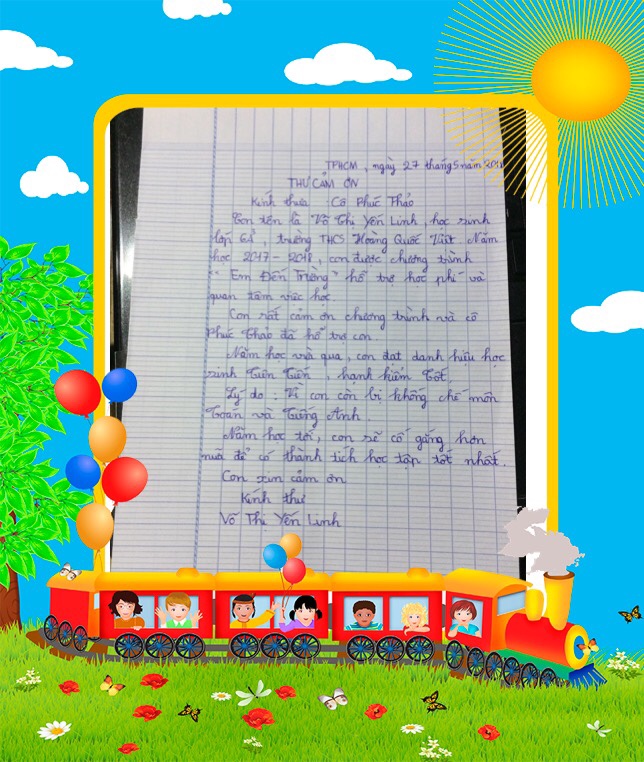 TPHCM, ngày 27 tháng 5 năm 2018
THƯ CẢM ƠN
Kính thưa Cô Phúc Thảo
Con tên là Võ Thị Yến Linh, học sinh
lớp 6A, trường THCS Hoàng Quốc Việt Năm
học 2017 - 2018, con được chương trình
"Em Đến Trường" hỗ trợ học phí và
quan tâm việc học.
Con rất cảm ơn chương trình và cô
Phúc Thảo đã hỗ trợ con.
Năm học vừa qua, con đạt danh hiệu học
sinh Tiên Tiến, hạnh kiểm Tốt.
Lý do: Vì con còn bị khống chế môn
Toán và Tiếng Anh.
Năm học tới, con sẽ cố gắng hơn
nữa để có thành tích học tập tốt nhất.
Con xin cảm ơn
Kính thư
Võ Thị Yến Linh